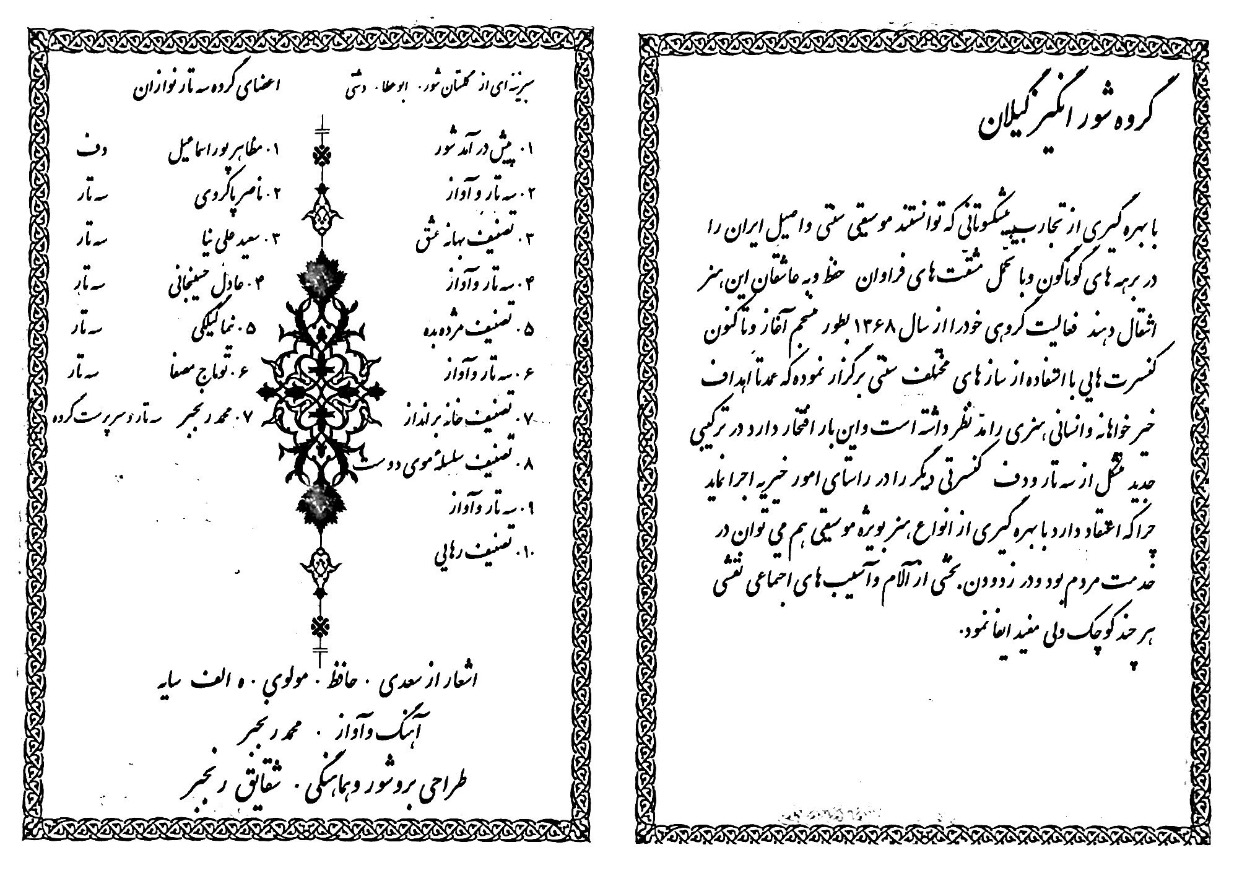 گروه شور انگیز گیلان
با بهره گیری از تجارب پیشکسوتانی که توانستند موسیقی سنتی و اصیل ایران را
در برهه های گوناگون و با تحمل مشقت های فراوان حفظ و به عاشقان این هنر
انتقال دهند فعالیت گروهی خود را از سال ۱۳۶۸ بطور منسجم آغاز و تاکنون
کنسرت هایی با استفاده از ساز های مختلف سنتی برگزار نموده که عمدتاً اهداف
خیر خواهانه و انسانی هنری را مد نظر داشته است و این بار افتخار دارد در ترکیبی
جدید متشکل از سه تار و دف کنسرتی دیگر را در راستای امور خیریه اجرا نماید
چرا که اعتقاد دارد با بهره گیری از انواع هنر بویژه موسیقی هم می توان در
خدمت مردم بود و در زدودن بخشی از آلام و آسیب های اجتماعی نقشی
هر چند کوچک ولی مفید ایفا نمود.
از گلستان شور. ابوعطا. دشتی
۱. پیش درآمد شور
۲. سه تار و آواز
۳. تصنیف بهانه عشق
۴. سه تار و آواز
۵. تصنیف مژده بده
۶. سه تار و آواز
۷. تصنیف خانه برانداز
۸. تصنیف سلسله موی دوست
۹. سه تار و آواز
۱۰. تصنیف رهایی
اعضای گروه سه تار نوازان
۱. مظاهر پور اسماعیل دف
۲. ناصر پاکروی سه تار
۳. سعید علی نیا سه تار
۴. عادل سه تار
۵. سه تار
۶. توماج مصفا سه تار
۷. محمد رنجبر سه تار و سرپرست گروه
اشعار از سعدی. حافظ. مولوی. ه الف سایه
آهنگ و آواز. محمد رنجبر
طراحی بروشور و هماهنگی. شقایق رنجبر